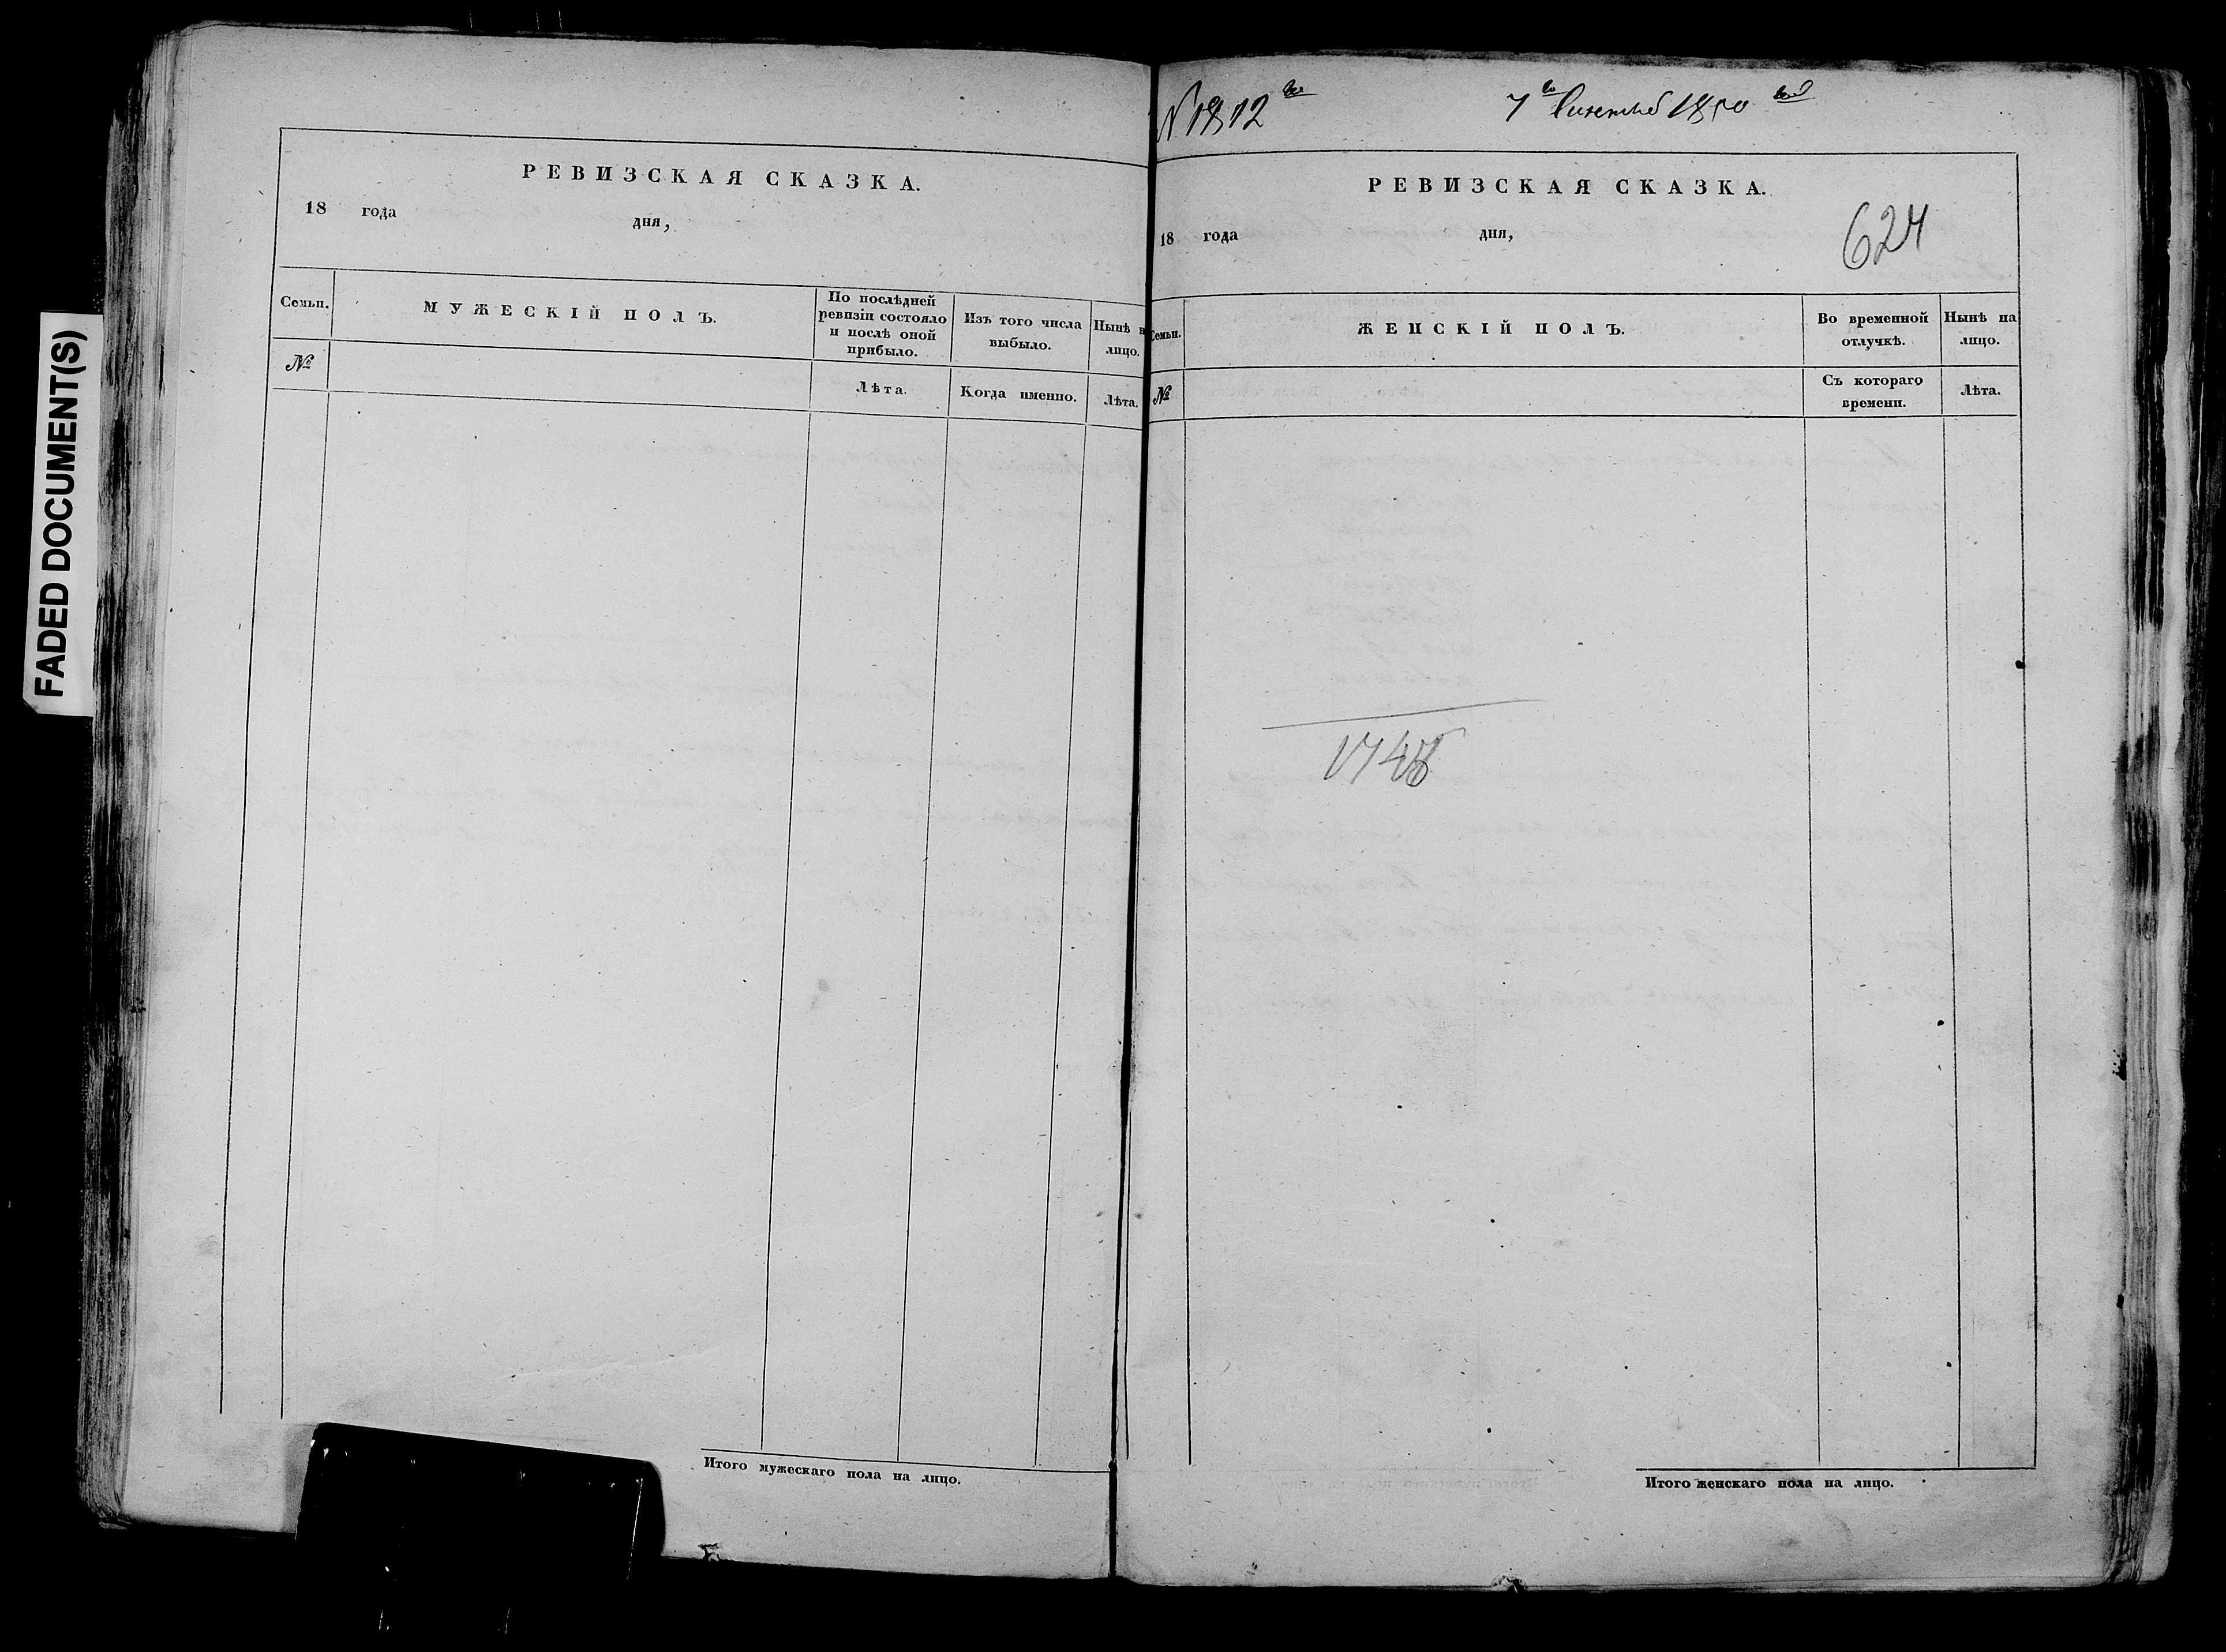 FADED DOCUMENT(S)
РЕВИЗСКАЯ СКАЗКА.
18 года дня,
Семьи. МУЖЕСКІЙ ПОЛЪ. По послѣдней ревизіи состояло и послѣ оной прибыло. Изъ того числа выбыло. Нынѣ н лицо.
№ Лѣта. Когда именно. Лѣта.
Итого мужескаго пола на лицо.
N 1812
7 Сентяб 1850
РЕВИЗСКАЯ СКАЗКА.
18 года дня,
624
Семьи. ЖЕНСКІЙ ПОЛЪ. Во временной отлучкѣ. Нынѣ на лицо.
№ Съ котораго времени. Лѣта.
Итого женскаго пола на лицо.